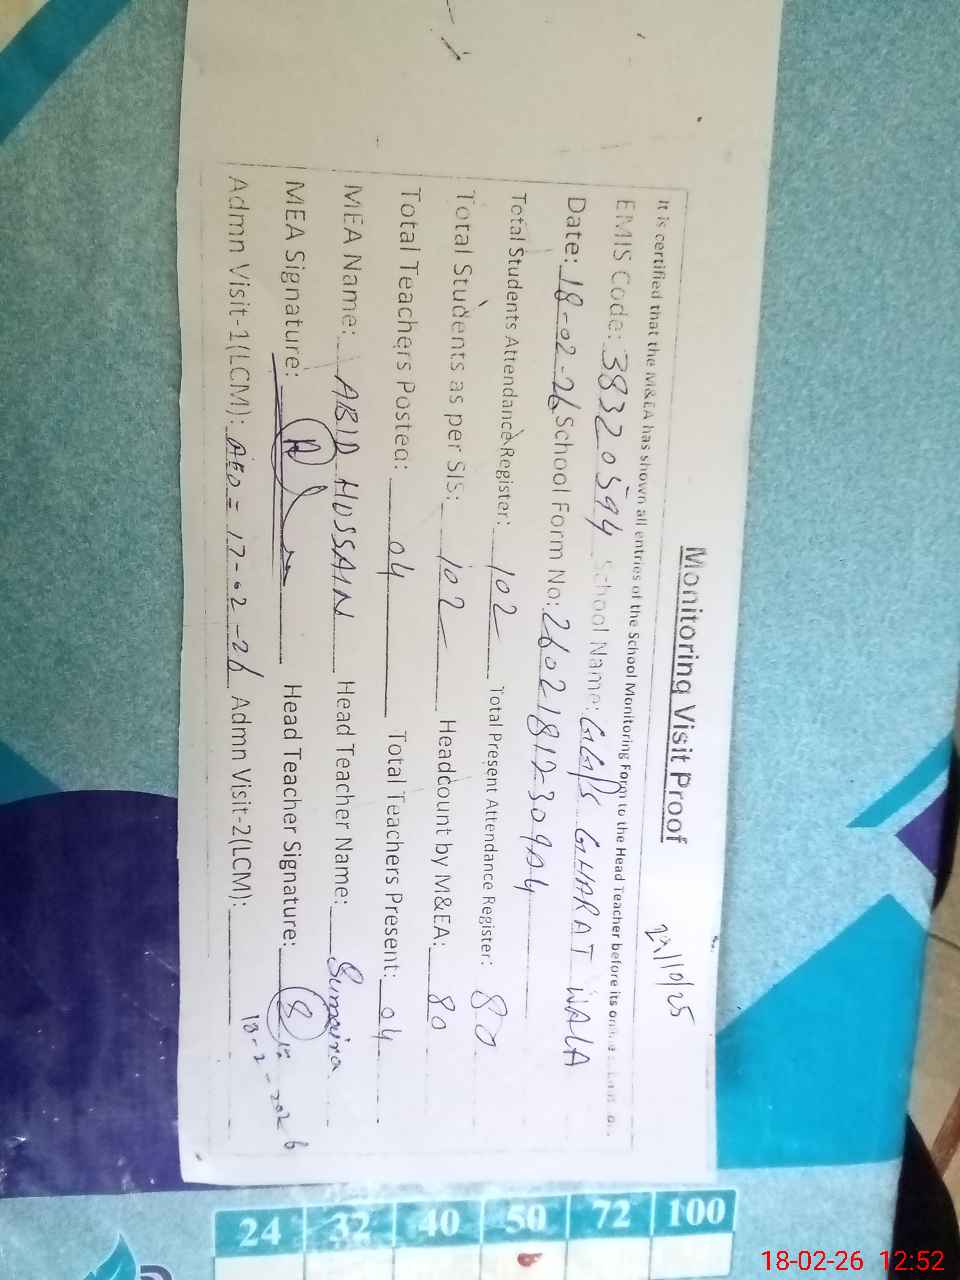 Monitoring Visit Proof
It is certified that the M&EA has shown all entries of the School Monitoring Form to the Head Teacher before its
EMIS Code: 38320594 School Name: GGPS GHARAT WALA
Date: 18-02-26 School Form No:
Total Students Attendance Register: 102 Total Present Attendance Register: 80
Total Students as per SIS: 102 Headcount by M&EA: 80
Total Teachers Posted: 04 Total Teachers Present: 04
MEA Name: ABID HUSSAIN Head Teacher Name: Sumaira
MEA Signature: Head Teacher Signature:
18-2-2026
Admn Visit-1(LCM): AEO = 17-02-26 Admn Visit-2(LCM):
24 32 40 50 72 100
18-02-26 12:52